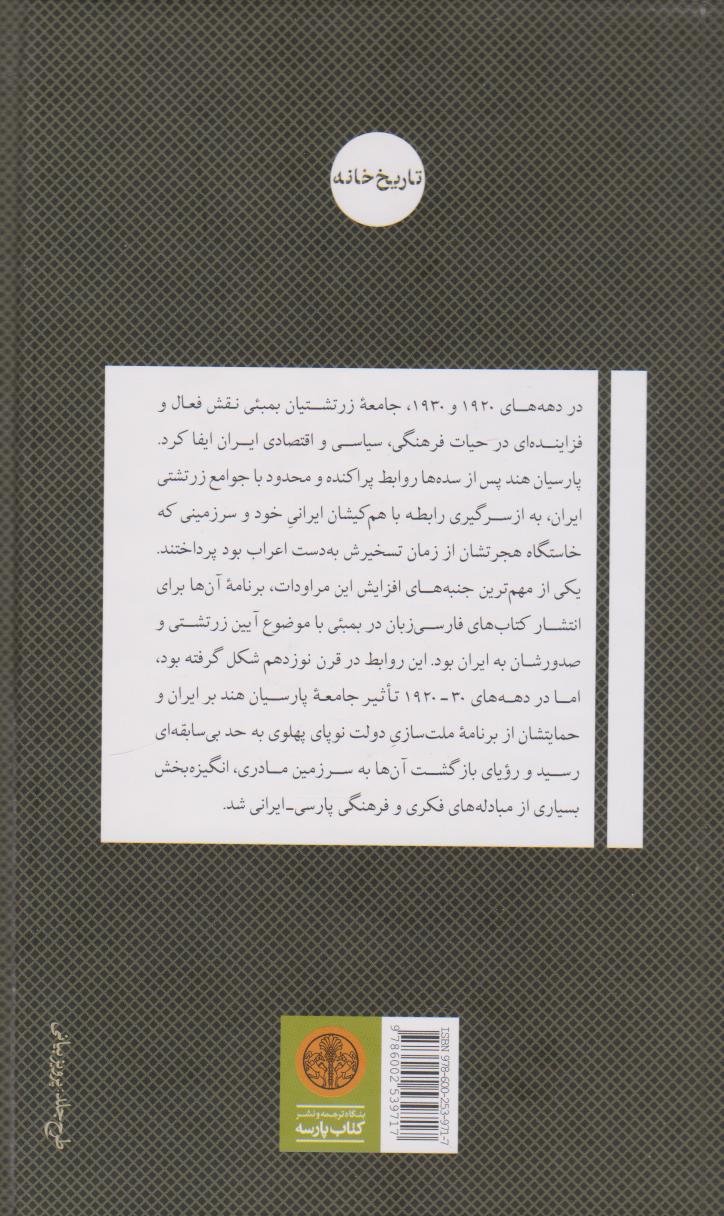 تاریخ‌خانه
در دهه‌های ۱۹۲۰ و ۱۹۳۰، جامعهٔ زرتشتیان بمبئی نقش فعال و
فزاینده‌ای در حیات فرهنگی، سیاسی و اقتصادی ایران ایفا کرد.
پارسیان هند پس از سده‌ها روابط پراکنده و محدود با جوامع زرتشتی
ایران، به ازسرگیری رابطه با هم‌کیشان ایرانیِ خود و سرزمینی که
خاستگاه هجرتشان از زمان تسخیرش به‌دست اعراب بود پرداختند.
یکی از مهم‌ترین جنبه‌های افزایش این مراودات، برنامهٔ آن‌ها برای
انتشار کتاب‌های فارسی‌زبان در بمبئی با موضوع آیین زرتشتی و
صدورشان به ایران بود. این روابط در قرن نوزدهم شکل گرفته بود،
اما در دهه‌های ۳۰ ـ ۱۹۲۰ تأثیر جامعهٔ پارسیان هند بر ایران و
حمایتشان از برنامهٔ ملت‌سازیِ دولت نوپای پهلوی به حد بی‌سابقه‌ای
رسید و رؤیای بازگشت آن‌ها به سرزمین مادری، انگیزه‌بخش
بسیاری از مبادله‌های فکری و فرهنگی پارسی‌ـ‌ایرانی شد.
ISBN 978-600-253-971-7
9 786002 539717
بنگاه ترجمه و نشر
کتاب پارسه
طرح جلد: پرویز بیانی